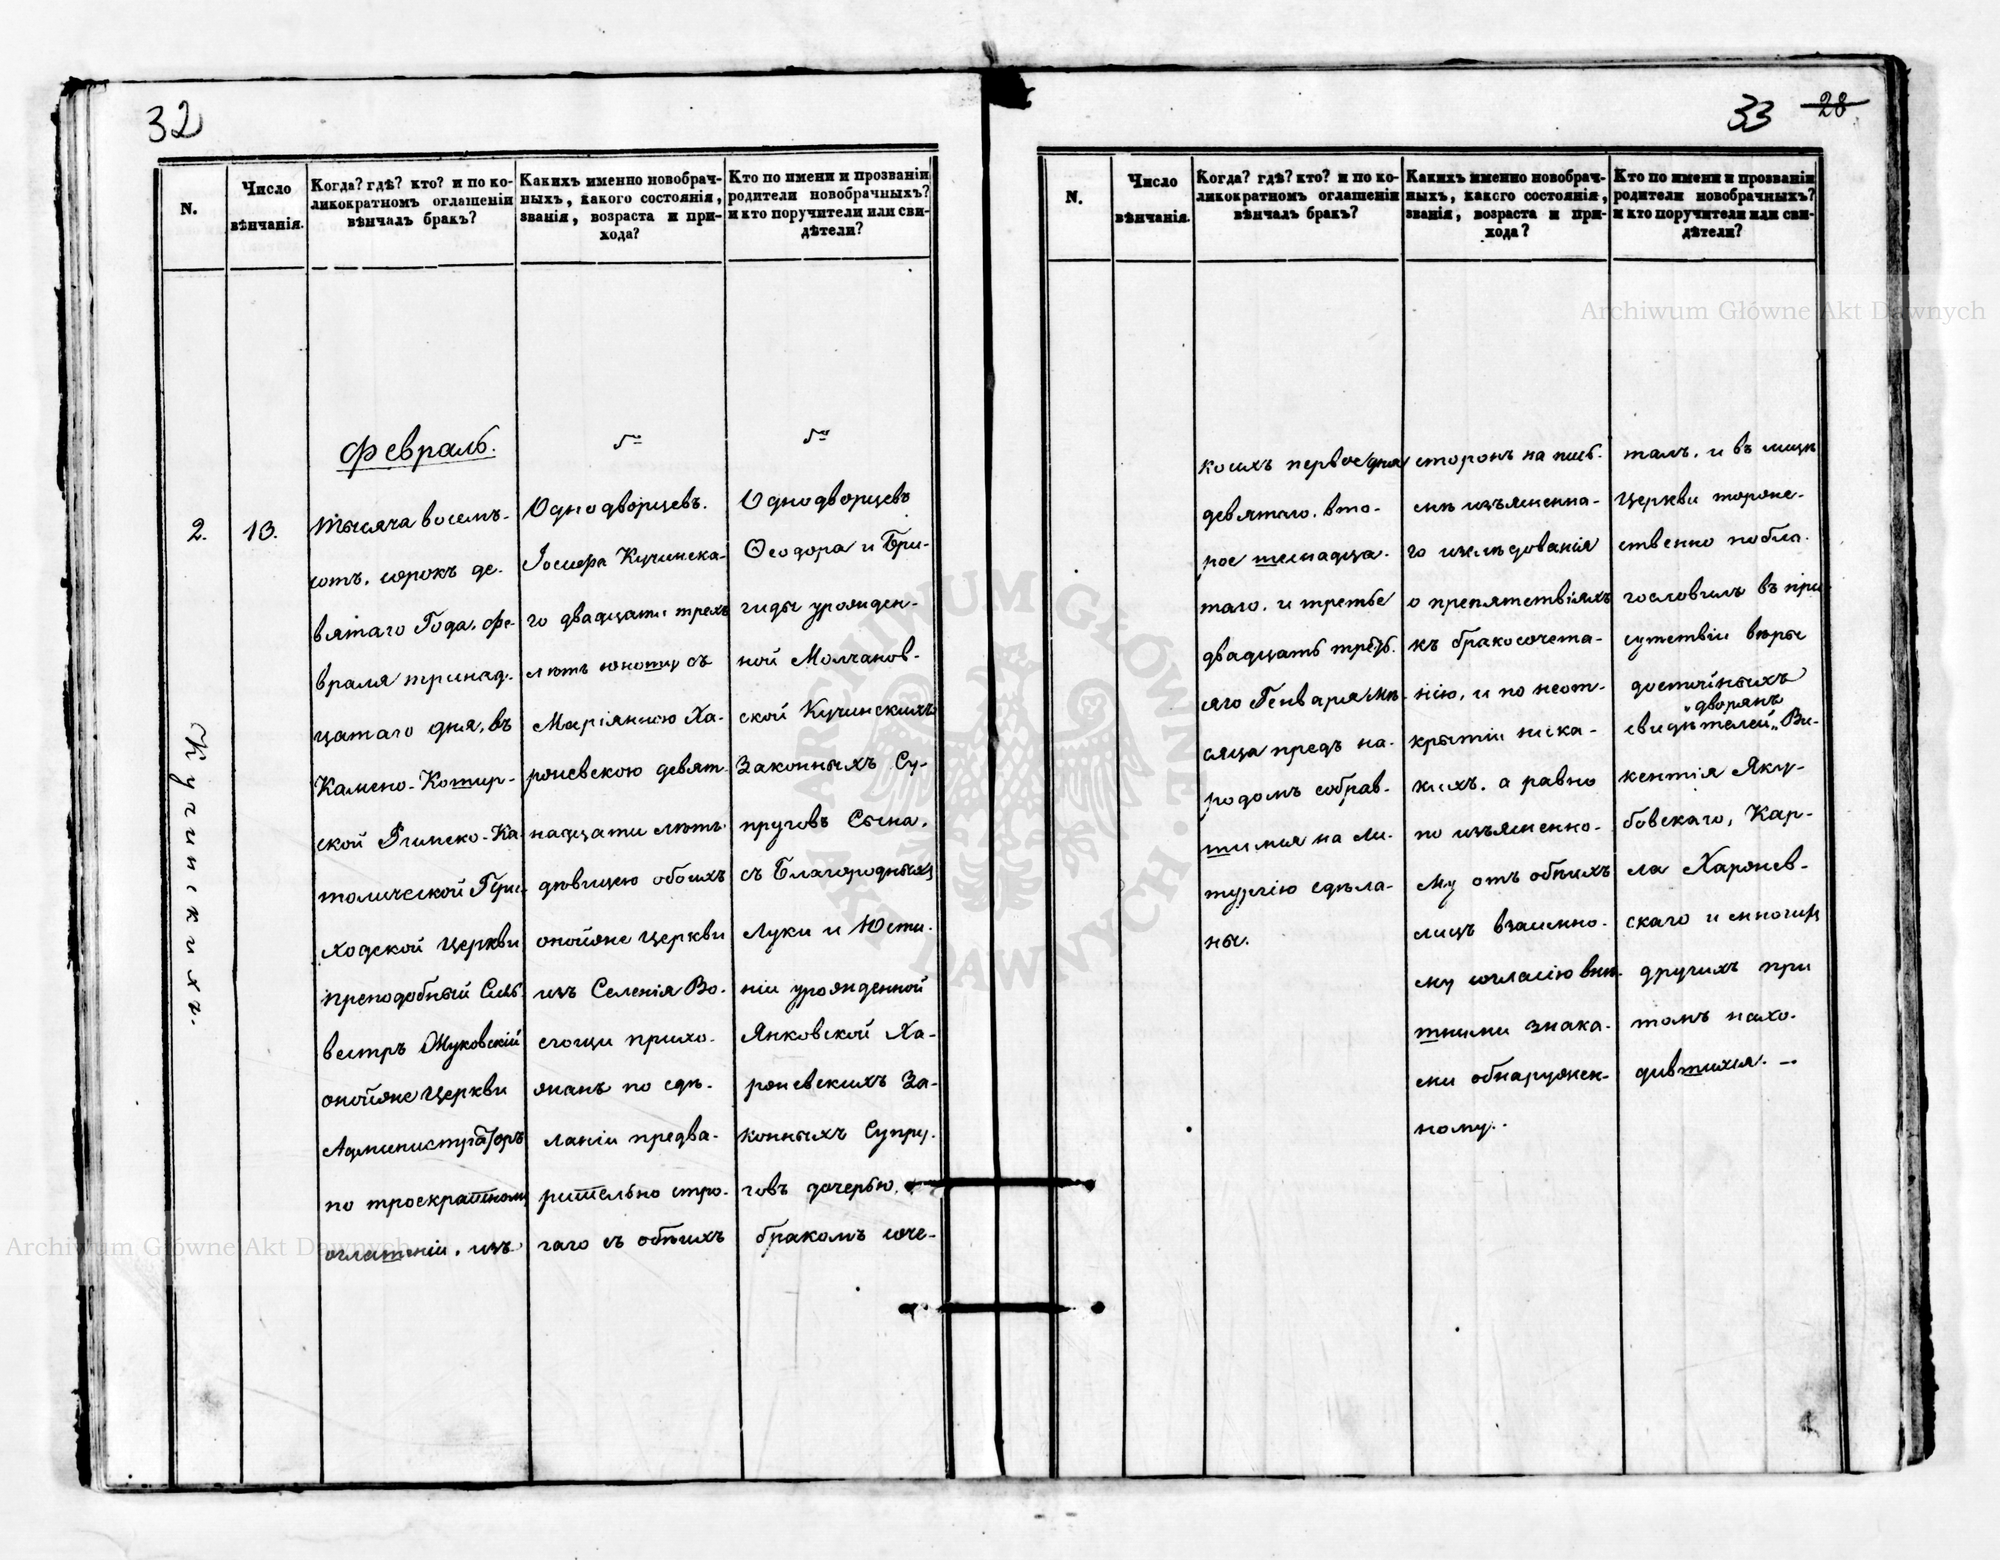 32
N.
Число
вѣнчанія.
Когда? гдѣ? кто? и по ко-
ликократномъ оглашеніи
вѣнчалъ бракъ?
Какихъ именно новобрач-
ныхъ, какого состоянія,
званія, возраста и при-
хода?
Кто по имени и прозванію
родители новобрачныхъ?
и кто поручители или сви-
дѣтели?
Февраль.
2.
13.
Кучинскихъ.
тысяча восемъ-
сотъ, сорокъ де-
вятаго Года, фе-
враля тринад-
цатаго дня, въ
Камено-Кошир-
ской Римско-Ка-
толической При-
ходской Церкви
преподобный Силь-
вестръ Жуковскій
опойяне Церкви
Администраторъ
по троекратномъ
оглашеніи, изъ
Однодворцевъ.
Іосифа Кучинска-
го двадцати трехъ
лѣтъ юношу съ
Маріянною Ха-
роневскою девят-
надцати лѣтъ
дѣвицею обоихъ
опойяне Церкви
изъ Селенія Во-
егощи прихо-
жанъ по сдѣ-
ланіи предва-
рительно стро-
гаго съ обѣихъ
Однодворцевъ
Ѳеодора и Бри-
гиды урожден-
ной Молчанов-
ской Кучинскихъ
Законныхъ Су-
пруговъ Сына,
съ Благородныхъ
Луки и Юсти-
ніи урожденной
Янковской Ха-
роневскихъ За-
конныхъ Супру-
говъ дочерью,
бракомъ соче-
33 28
N.
Число
вѣнчанія.
Когда? гдѣ? кто? и по ко-
ликократномъ оглашеніи
вѣнчалъ бракъ?
Какихъ именно новобрач-
ныхъ, какого состоянія,
званія, возраста и при-
хода?
Кто по имени и прозванію
родители новобрачныхъ?
и кто поручители или сви-
дѣтели?
коихъ первое дня
девятаго, вто-
рое шеснадца-
таго, и третье
двадцать треть-
яго Генваря мѣ-
сяца предъ на-
родомъ собрав-
шимся на Ли-
тургію сдѣла-
ны.
сторонъ на пись-
мѣ изъясненна-
го изслѣдованія
о препятствіяхъ
къ бракосочета-
нію, и по неот-
крытіи ника-
кихъ, а равно
по изъясненно-
му отъ обѣихъ
лицъ взаимно-
му согласію внѣ-
шними знака-
ми обнаружен-
ному.
талъ, и въ лицѣ
Церкви торже-
ственно побла-
гословилъ въ при-
сутствіи вѣры
достойныхъ
дворянъ
свидѣтелей Ви-
кентія Яку-
бовскаго, Кар-
ла Харонев-
скаго и многихъ
другихъ при
томъ нахо-
дившихся. —
Archiwum Główne Akt Dawnych
Archiwum Główne Akt Dawnych
ARCHIWUM GŁÓWNE
AKT DAWNYCH